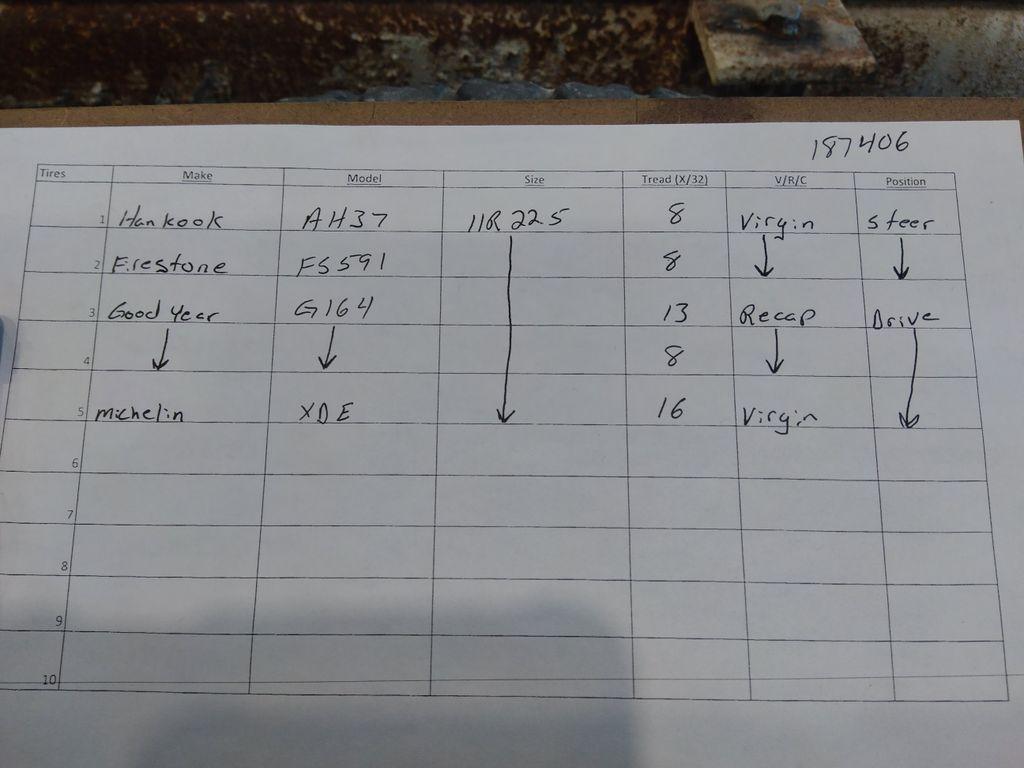 187406
Tires Make Model Size Tread (X/32) V/R/C Position
1 Hankook AH37 11R 225 8 Virgin steer
2 Firestone FS591 8
3 Good Year G164 13 Recap Drive
4 8
5 michelin XDE 16 Virgin
6
7
8
9
10